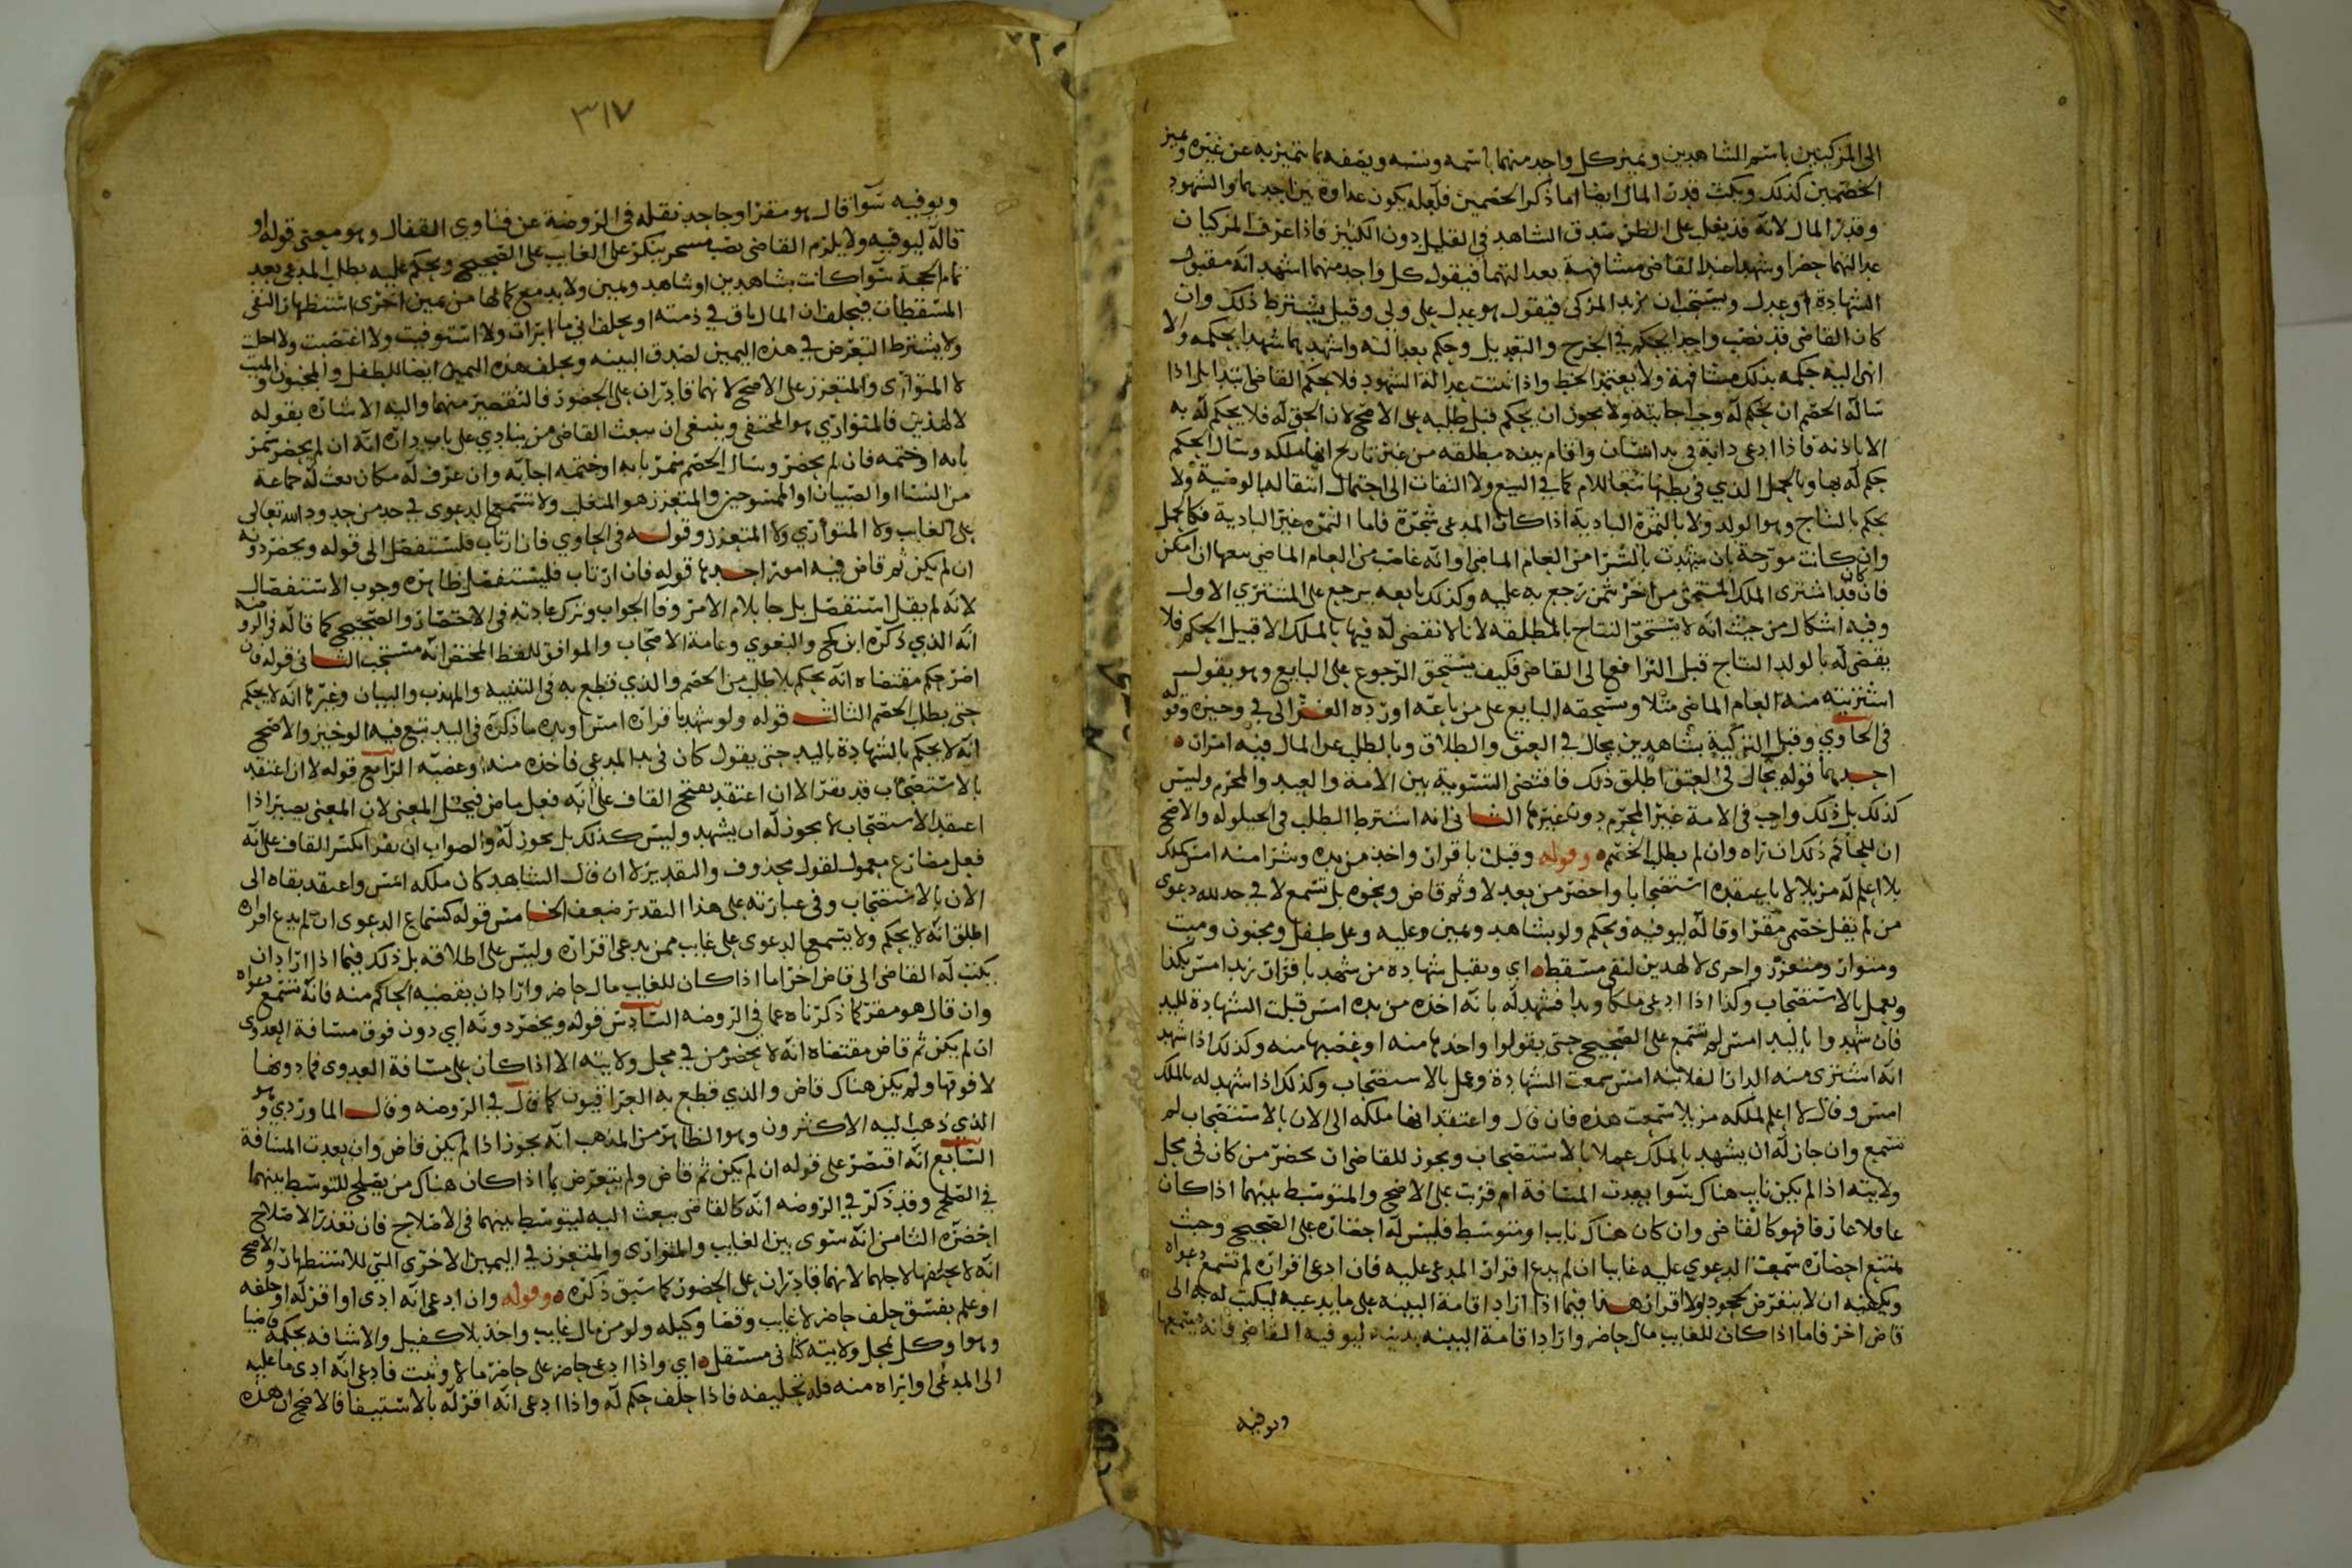 الى المزكيين باسم الشاهدين ويميز كل واحد منهما باسمه ونسبه ويصفه بما يتميز به عن غيره ويميز
الخصمين كذلك ويكتب قدر المال ايضا اما ذكر الخصمين فلعله يكون عداوة بين احدهما والشهود
وقدر المال لانه قد يغلب على الظن صدق الشاهد في القليل دون الكثير فاذا عرف المزكيان
عدالتهما حضرا وشهدا عند القاضي مشافهة بعدالتهما فيقول كل واحد منهما اشهد انه مقبول
الشهادة او عدل ويستحب ان يزيد المزكي فيقول هو عدل علي ولي وقيل يشترط ذلك وان
كان القاضي قد نصب واحدا يحكم في الجرح والتعديل وحكم بعدالته واشهد بها شهدا بحكمه والا
انهى اليه حكمه بذلك مشافهة ولا يعتمد الخط واذا ثبتت عدالة الشهود فلا يحكم القاضي ابتدا بل اذا
ساله الخصم ان يحكم له وجب اجابته ولا يجوز ان يحكم قبل طلبه على الاصح لان الحق له فلا يحكم له به
الا باذنه فاذا ادعى دابة في يد انسان واقام بينه مطلقه من غير تاريخ انها ملكه وسال الحكم
حكم له بها وبالحمل الذي في بطنها تبعا للام كما في البيع ولا التفات الى احتمال انتقالها بالوصية ولا
يحكم بالنتاج وهو الولد ولا بالثمرة البادية اذا كان المدعى شجرة فاما الثمرة غير البادية فكالحمل
وان كانت مورخة بان شهدت بالشرا من العام الماضي او انه غاصب من العام الماضي سمعها ان امكن
فان كان قد اشترى الملك المستحق من اخر بثمن رجع به عليه وكذلك بايعه يرجع على المشتري الاول
وفيه اشكال من حيث انه لا يستحق النتاج بالمطلقه لانا لا نقضي له فيها بالملك الا قبيل الحكم فلا
يقضى له بالولد النتاج قبل الترافع الى القاضي فكيف يستحق الرجوع على البايع وهو يقول
اشتريته منه العام الماضي مثلا ويستحقه البايع على من باعه اورده الغزالي في وجيزه وقوله
في الحاوي وقبل التزكية بشاهدين يحال في العتق والطلاق وبالطلب عن المال فيه امران
احدهما قوله يحال في العتق اطلق ذلك فاقتضى التسوية بين الامة والعبد والمحرم وليس
كذلك بل ذلك واجب في الامة غير المحرم دون غيرها الثاني انه اشترط الطلب في الحيلوله والاصح
ان للحاكم ذلك ان راه وان لم يطلب الخصم وقوله وقبلت باقرار واخذ من يده وشرا منه امس كذلك
بلا اعلم له مزيلا لا باعتقده استصحابا واحضر من بعد لا وثم قاض ونحوه بل تسمع لا في حد لله دعوى
من لم يقل خصمي مقر او قاله ليوفيه ويحكم ولو بشاهد ويمين وعليه وعلى طفل ومجنون وميت
ومتوار ومتعزز واحرى لا لهذين لنفي مسقط اي ويقبل شهادة من شهد باقرار زيد امس بكذا
ويعمل بالاستصحاب وكذا اذا ادعى ملكا ويدا فشهد له بانه اخذه من يده امس قبلت الشهادة لليد
فان شهدوا باليد امس لم تسمع على الصحيح حتى يقولوا واخذها منه او غصبها منه وكذلك اذا شهد
انه اشترى منه الدار الفلانيه امس سمعت الشهادة وعمل بالاستصحاب وكذلك اذا شهد له بالملك
امس وقال لا اعلم لملكه مزيلا سمعت هذه فان قال واعتقد انها ملكه الى الان بالاستصحاب لم
تسمع وان جاز له ان يشهد بالملك عملا بالاستصحاب ويجوز للقاضي ان يحضر من كان في محل
ولايته اذا لم يكن نايب هناك سوا بعدت المسافة ام قربت على الاصح والمتوسط بينهما اذا كان
عاقلا عارفا فهو كالقاضي وان كان هناك نايب او متوسط فليس له احضاره على الصحيح وحيث
يمتنع احضاره سمعت الدعوي عليه غايبا ان لم يدع اقرار المدعى عليه فان ادعى اقراره لم تسمع دعواه
ويكفيه ان لا يتعرض لجحود ولا اقرار هذا فيما اذا اراد اقامة البينه على ما يدعيه ليكتب له به الى
قاض اخر فاما اذا كان للغايب مال حاضر واراد اقامة البينه بدينه ليوفيه القاضي فانه يسمعها
ويوفيه
٣١٧
ويوفيه سوا قال هو مقر او جاحد نقله في الروضة عن فتاوي القفال وهو معنى قوله او
قاله ليوفيه ولا يلزم القاضي نصب مسخر ينكر على الغايب على الصحيح ويحكم عليه بطلب المدعي بعد
تمام الحجة سوا كانت بشاهدين او شاهد ويمين ولا بد مع كمالها من يمين اخرى استظهارا لنفي
المسقطات فيحلف ان المال باق في ذمته او يحلف اني ما ابرات ولا استوفيت ولا اعتضت ولا احلت
ولا يشترط التعرض في هذه اليمين لصدق البينه ويحلف هذه اليمين ايضا للطفل والمجنون والميت
لا المتواري والمتعزز على الاصح لانهما قادران على الحضور فالتقصير منهما واليه الاشاره بقوله
لا لهذين فالمتواري هو المختفي وينبغي ان يبعث القاضي من ينادي على باب داره انه ان لم يحضر سمر
بابه او ختمه فان لم يحضر وسال الخصم سمر بابه او ختمه اجابه وان عرف له مكان بعث له جماعة
من النسا او الصبيان او الممسوحين والمتعزز هو المتغلب ولا تسمع الدعوى في حد من حدود الله تعالى
على الغايب ولا المتواري ولا المتعزز وقوله في الحاوي فان ارتاب فليستفصل الى قوله ويحضر دونه
ان لم يكن ثم قاض فيه امور احدها قوله فان ارتاب فليستفصل ظاهره وجوب الاستفصال
لانه لم يقل استفصل بل جا بلام الامر وفا الجواب وترك عادته في الاختصار والصحيح كما قاله في الروضه
انه الذي ذكره ابن كج والبغوي وعامة الاصحاب والموافق للفظ المختصر انه مستحب الثاني قوله فان
اصر حكم مقتضاه انه يحكم بلا طلب من الخصم والذي قطع به في التنبيه والمهذب والبيان وغيرها انه لا يحكم
حتى يطلب الخصم الثالث قوله ولو شهد باقراره امس او يده ما ذكره في اليد تبع فيه الوجيز والاصح
انه لا يحكم بالشهادة باليد حتى يقول كان في يد المدعي فاخذه منه او غصبه الرابع قوله لا ان اعتقد
بالاستصحاب قد يقرا لا ان اعتقد بفتح القاف على انه فعل ماض فيختل المعنى لان المعنى يصير اذا
اعتقد الاستصحاب لا يجوز له ان يشهد وليس كذلك بل يجوز له والصواب ان يقرا بكسر القاف على انه
فعل مضارع معمول لقول محذوف والتقدير لا ان قال الشاهد كان ملكه امس واعتقد بقاه الى
الان بالاستصحاب وفي عبارته على هذا التقدير ضعف الخامس قوله كسماع الدعوى ان لم يدع اقراره
اطلق انه لا يحكم ولا يسمع الدعوى على غايب ممن يدعي اقراره وليس على اطلاقه بل ذلك فيما اذا اراد ان
يكتب له القاضي الى قاض اخر اما اذا كان للغايب مال حاضر واراد ان يقضيه الحاكم منه فانه تسمع دعواه
وان قال هو مقر كما ذكرناه عما في الروضه السادس قوله ويحضر دونه اي دون فوق مسافة العدوى
ان لم يكن ثم قاض مقتضاه انه لا يحضر من في محل ولايته الا اذا كان على مسافة العدوى فما دونها
لا فوقها ولم يكن هناك قاض والذي قطع به العراقيون كما قال في الروضه وقال الماوردي وهو
الذي ذهب اليه الاكثرون وهو الظاهر من المذهب انه يجوز اذا لم يكن قاض وان بعدت المسافة
السابع انه اقتصر على قوله ان لم يكن ثم قاض ولم يتعرض بما اذا كان هناك من يصلح للتوسط بينهما
في الصلح وقد ذكر في الروضه انه كالقاضي يبعث اليه ليتوسط بينهما في الاصلاح فان تعذر الاصلاح
احضره الثامن انه سوى بين الغايب والمتواري والمتعزز في اليمين الاخرى التي للاستظهار والاصح
انه لا يحلفها لاجلهما لانهما قادران على الحضور كما سبق ذكره وقوله وان ادعى انه ادى او اقر له او حلفه
او علم بفسق حلف حاضر لا غايب وقضا وكيله ولو من مال غايب واخذ بلا كفيل والاشافه بحكمه قاضيا
وهوا وكل بمحل ولايته كفى مستقل اي واذا ادعى حاضر على حاضر مالا وثبت فادعى انه ادى ما عليه
الى المدعي او ابراه منه فله تحليفه فاذا حلف حكم له واذا ادعى انه اقر له بالاستيفا فالاصح ان هذه